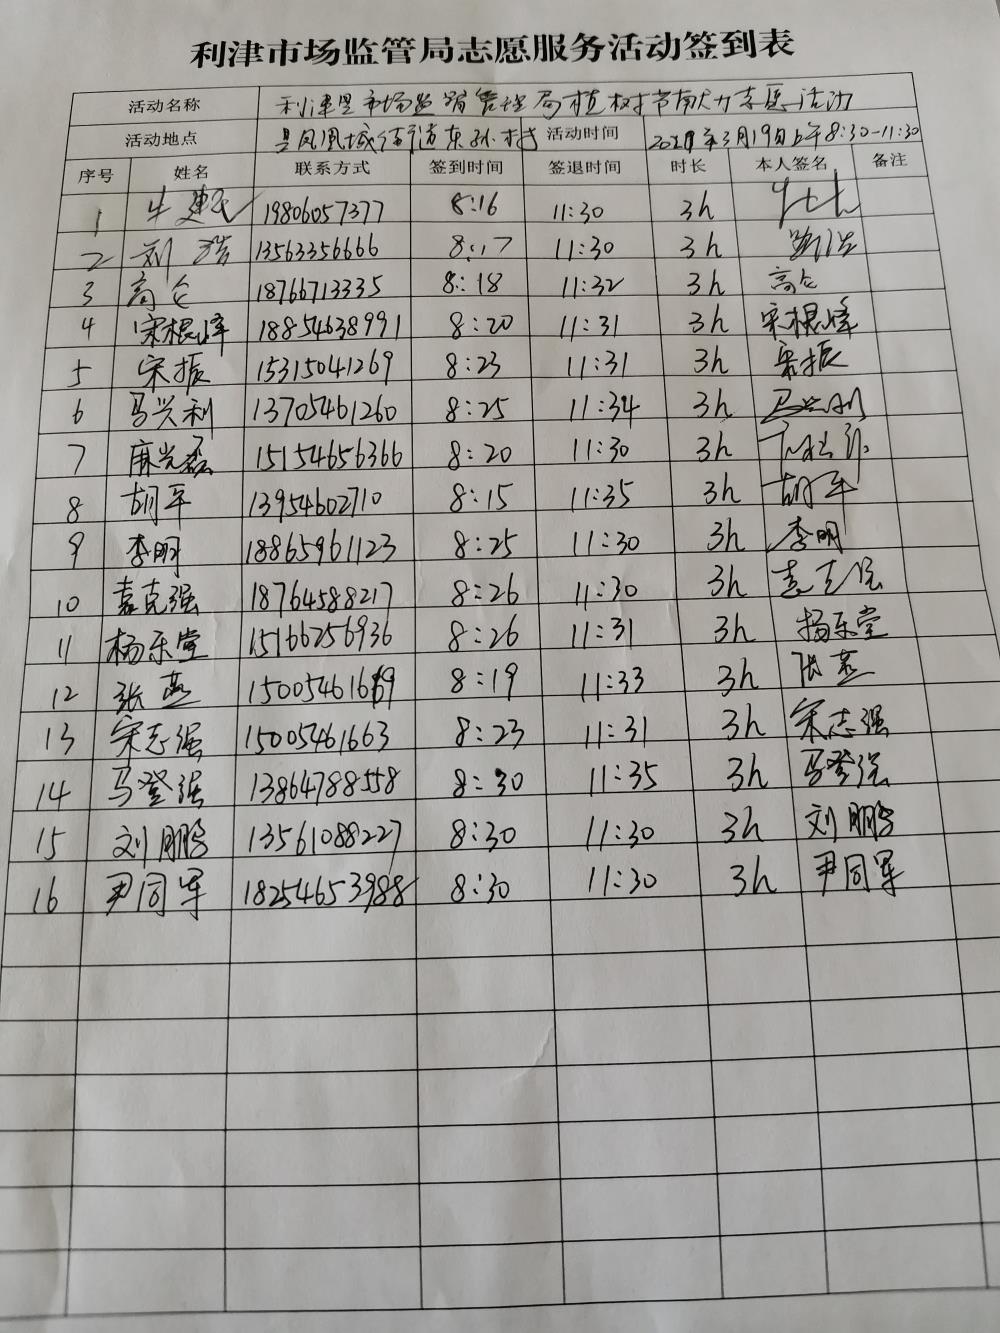 利津市场监管局志愿服务活动签到表
活动名称 利津县市场监督管理局植树节献力志愿活动
活动地点 县凤凰城街道东孙村 活动时间 年3月19日上午8:30-11:30
序号 姓名 联系方式 签到时间 签退时间 时长 本人签名 备注
1 牛 19806057377 8:16 11:30 3h
2 刘浩 13563356666 8:17 11:30 3h 刘浩
3 高仑 18766713335 8:18 11:32 3h 高仑
4 宋根峰 18854638991 8:20 11:31 3h 宋根峰
5 宋振 15315041269 8:23 11:31 3h 宋振
6 马兴利 13705461260 8:25 11:34 3h 马兴利
7 麻兴磊 15154656366 8:20 11:30 3h
8 胡军 13954602710 8:15 11:35 3h 胡军
9 李明 18865961123 8:25 11:30 3h 李明
10 袁克强 18764588217 8:26 11:30 3h 袁克强
11 杨乐堂 15166256936 8:26 11:31 3h 杨乐堂
12 张燕 8:19 11:33 3h 张燕
13 宋志强 15005461663 8:23 11:31 3h 宋志强
14 马登强 13864788558 8:30 11:35 3h 马登强
15 刘鹏 13561088227 8:30 11:30 3h 刘鹏
16 尹同军 18254653988 8:30 11:30 3h 尹同军